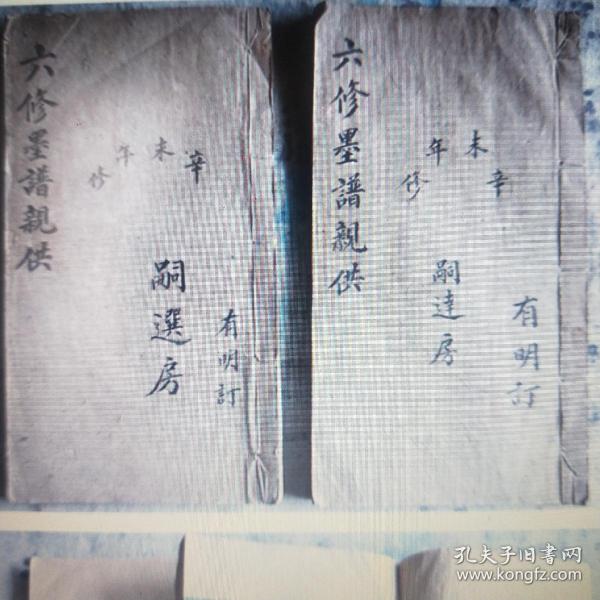 六修墨譜親供
辛未年修
嗣選房
有明訂
六修墨譜親供
辛未年修
嗣達房
有明訂
孔夫子旧书网
www.kongfz.com